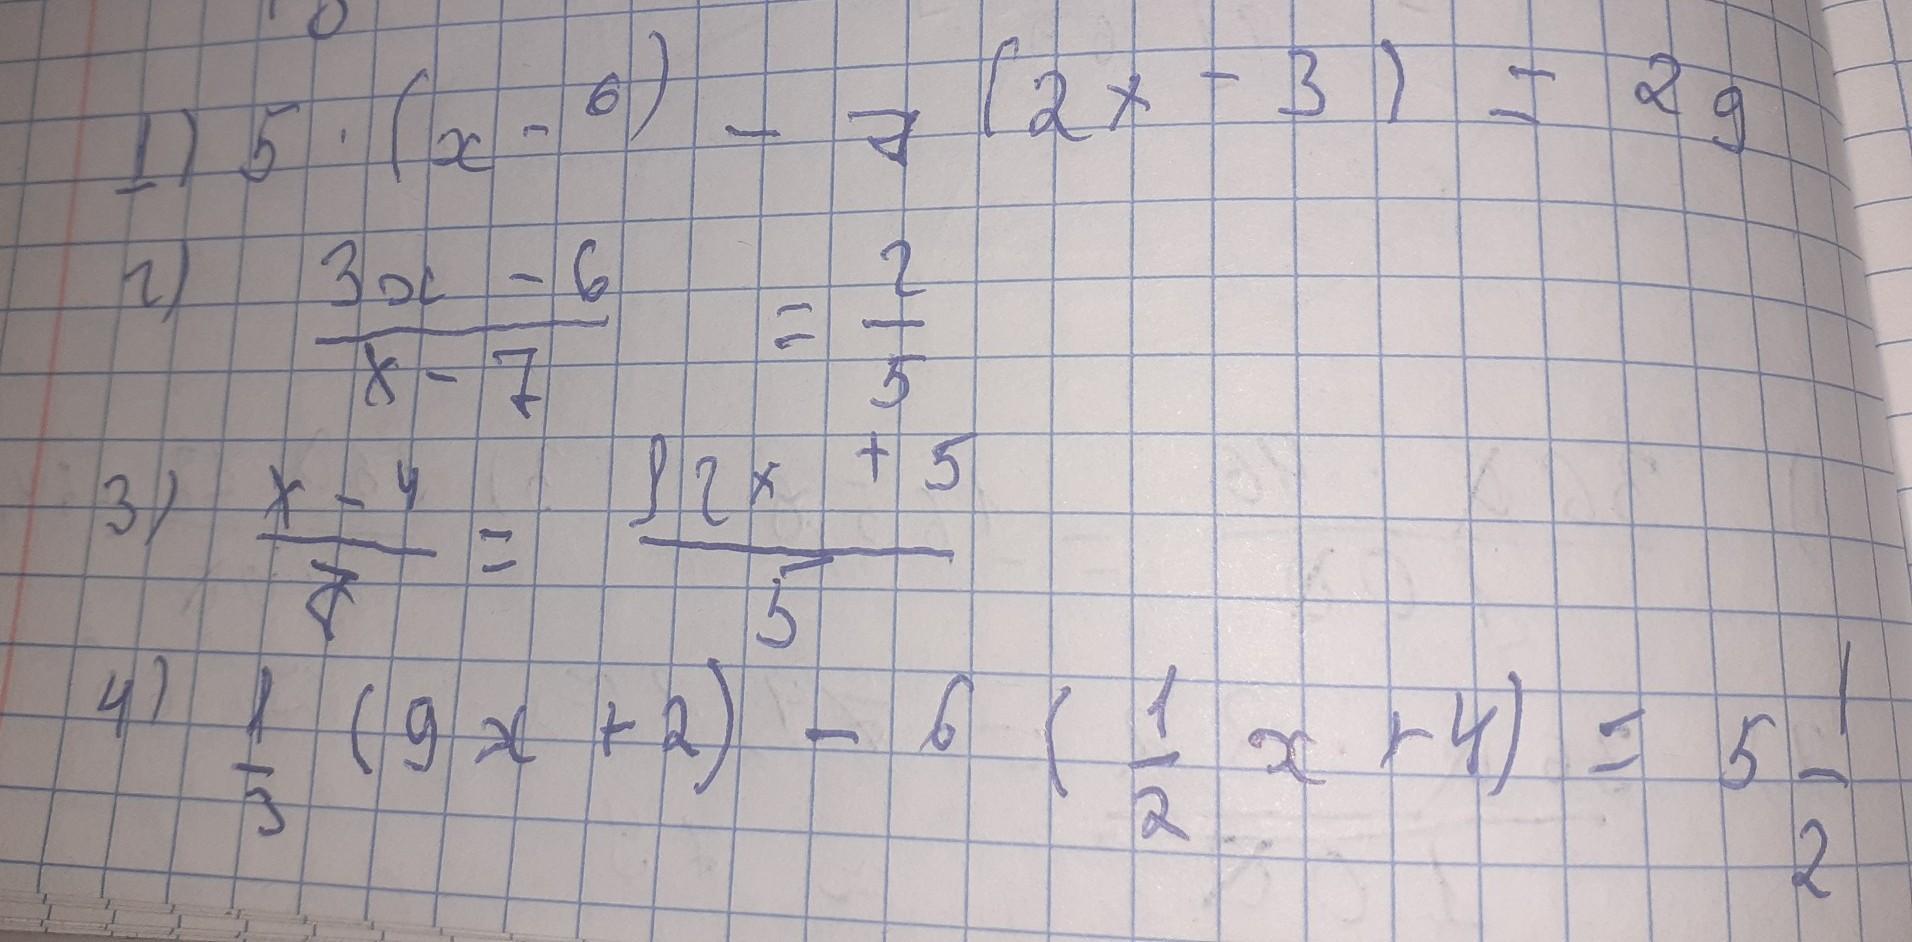 1) 5 · (x - 6) - 7 (2x - 3) = 29
2) (3x - 6)/(x - 7) = 2/5
3) (x - 4)/7 = (12x + 5)/5
4) 1/3 (9x + 2) - 6 (1/2 x + 4) = 5 1/2